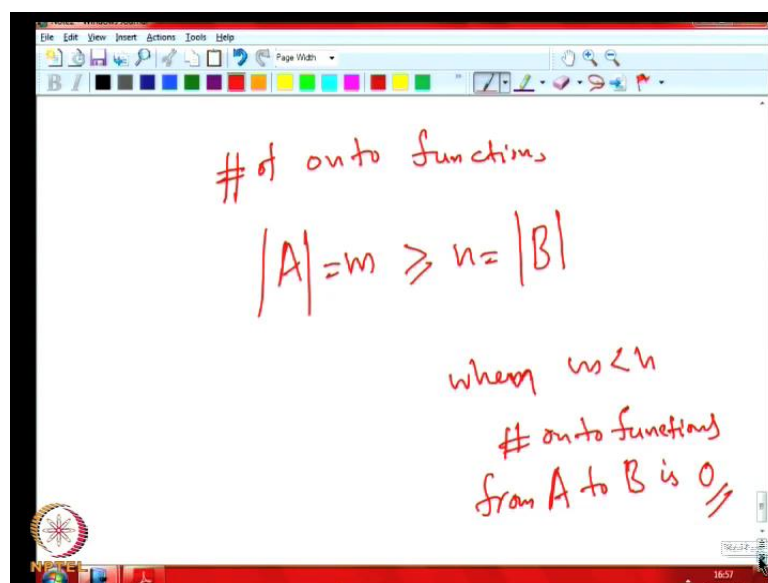 File Edit View Insert Actions Tools Help
Page Width
B I
# of onto functions
|A| = m ⩾ n = |B|
when m < n
# onto functions
from A to B is 0
NPTEL
16:57